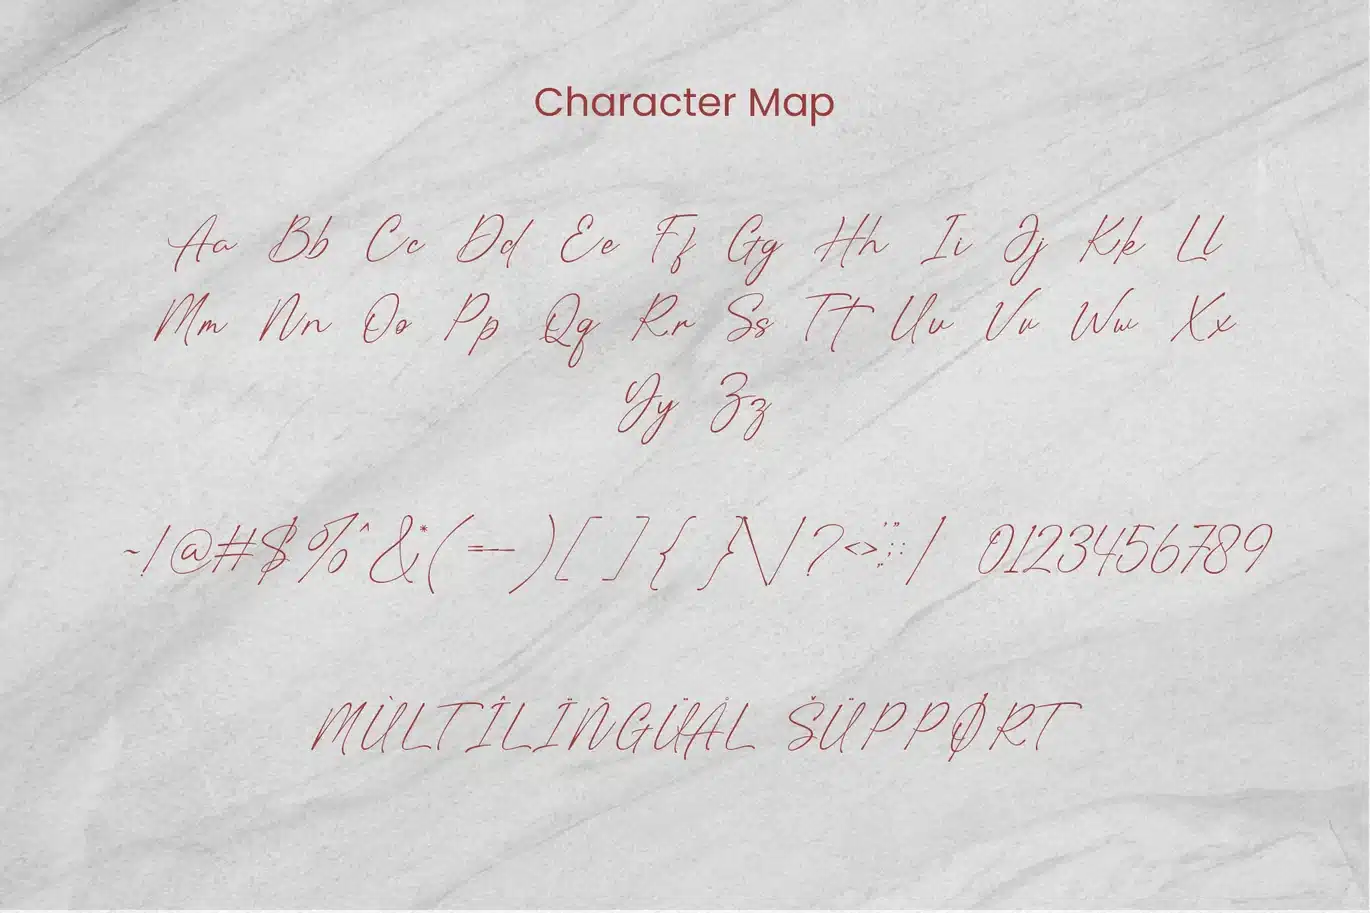 Character Map
Aa Bb Cc Dd Ee Ff Gg Hh Ii Jj Kk Ll
Mm Nn Oo Pp Qq Rr Ss Tt Uu Vv Ww Xx
Yy Zz
~!@#$%^&*(-=_)[]{}\/?<>:;'"| 0123456789
MÙLTÎLÏÑGÜÅL ŠÜPPØRT